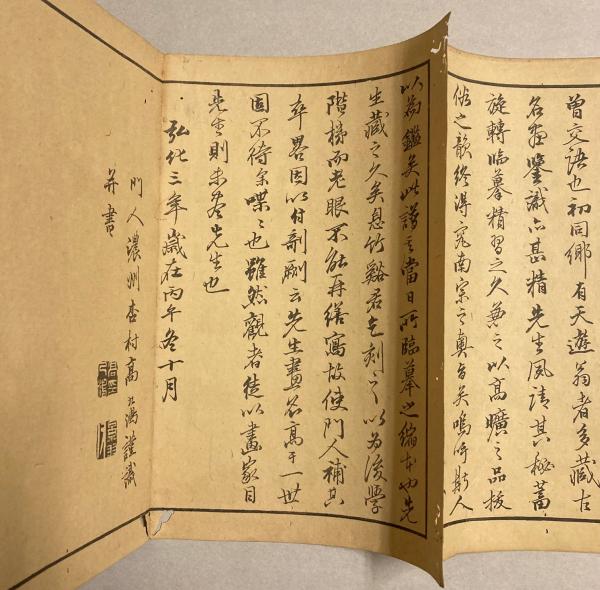 曽交語也初同郷有天遊翁者多藏古
名畫鑒識亦甚精先生夙請其秘蓄
旋轉臨摹精習之久兼之以高曠之品拔
俗之韻終得窺南宗之奥旨矣嗚呼斯人
以為鑑矣此譜之當日所臨摹之縮本也先
生藏之久矣息竹谿君乞刻之以為後學
階梯而老眼不能再繕寫故使門人補其
卒畧因以付剞劂云先生畫名高于一世
固不待余喋々也雖然觀者徒以畫家目
先生則未盡先生也
弘化三年歳在丙午冬十月
門人濃州杏村高 謹識
并書